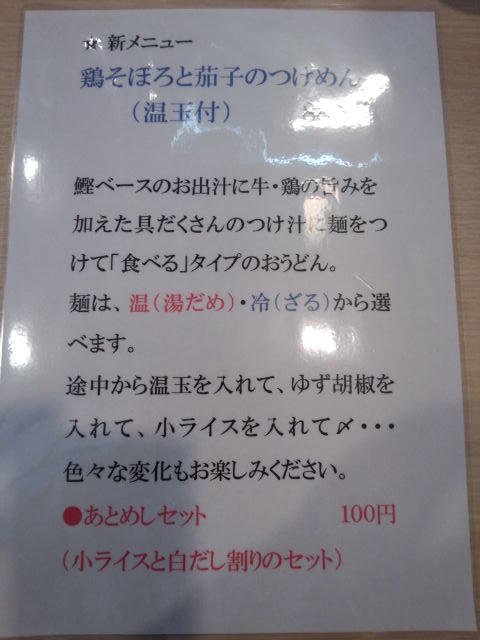 ☆ 新メニュー
鶏そぼろと茄子のつけめん
（温玉付）
鰹ベースのお出汁に牛・鶏の旨みを
加えた具だくさんのつけ汁に麺をつ
けて「食べる」タイプのおうどん。
麺は、温（湯だめ）・冷（ざる）から選
べます。
途中から温玉を入れて、ゆず胡椒を
入れて、小ライスを入れて〆・・・
色々な変化もお楽しみください。
●あとめしセット 100円
（小ライスと白だし割りのセット）